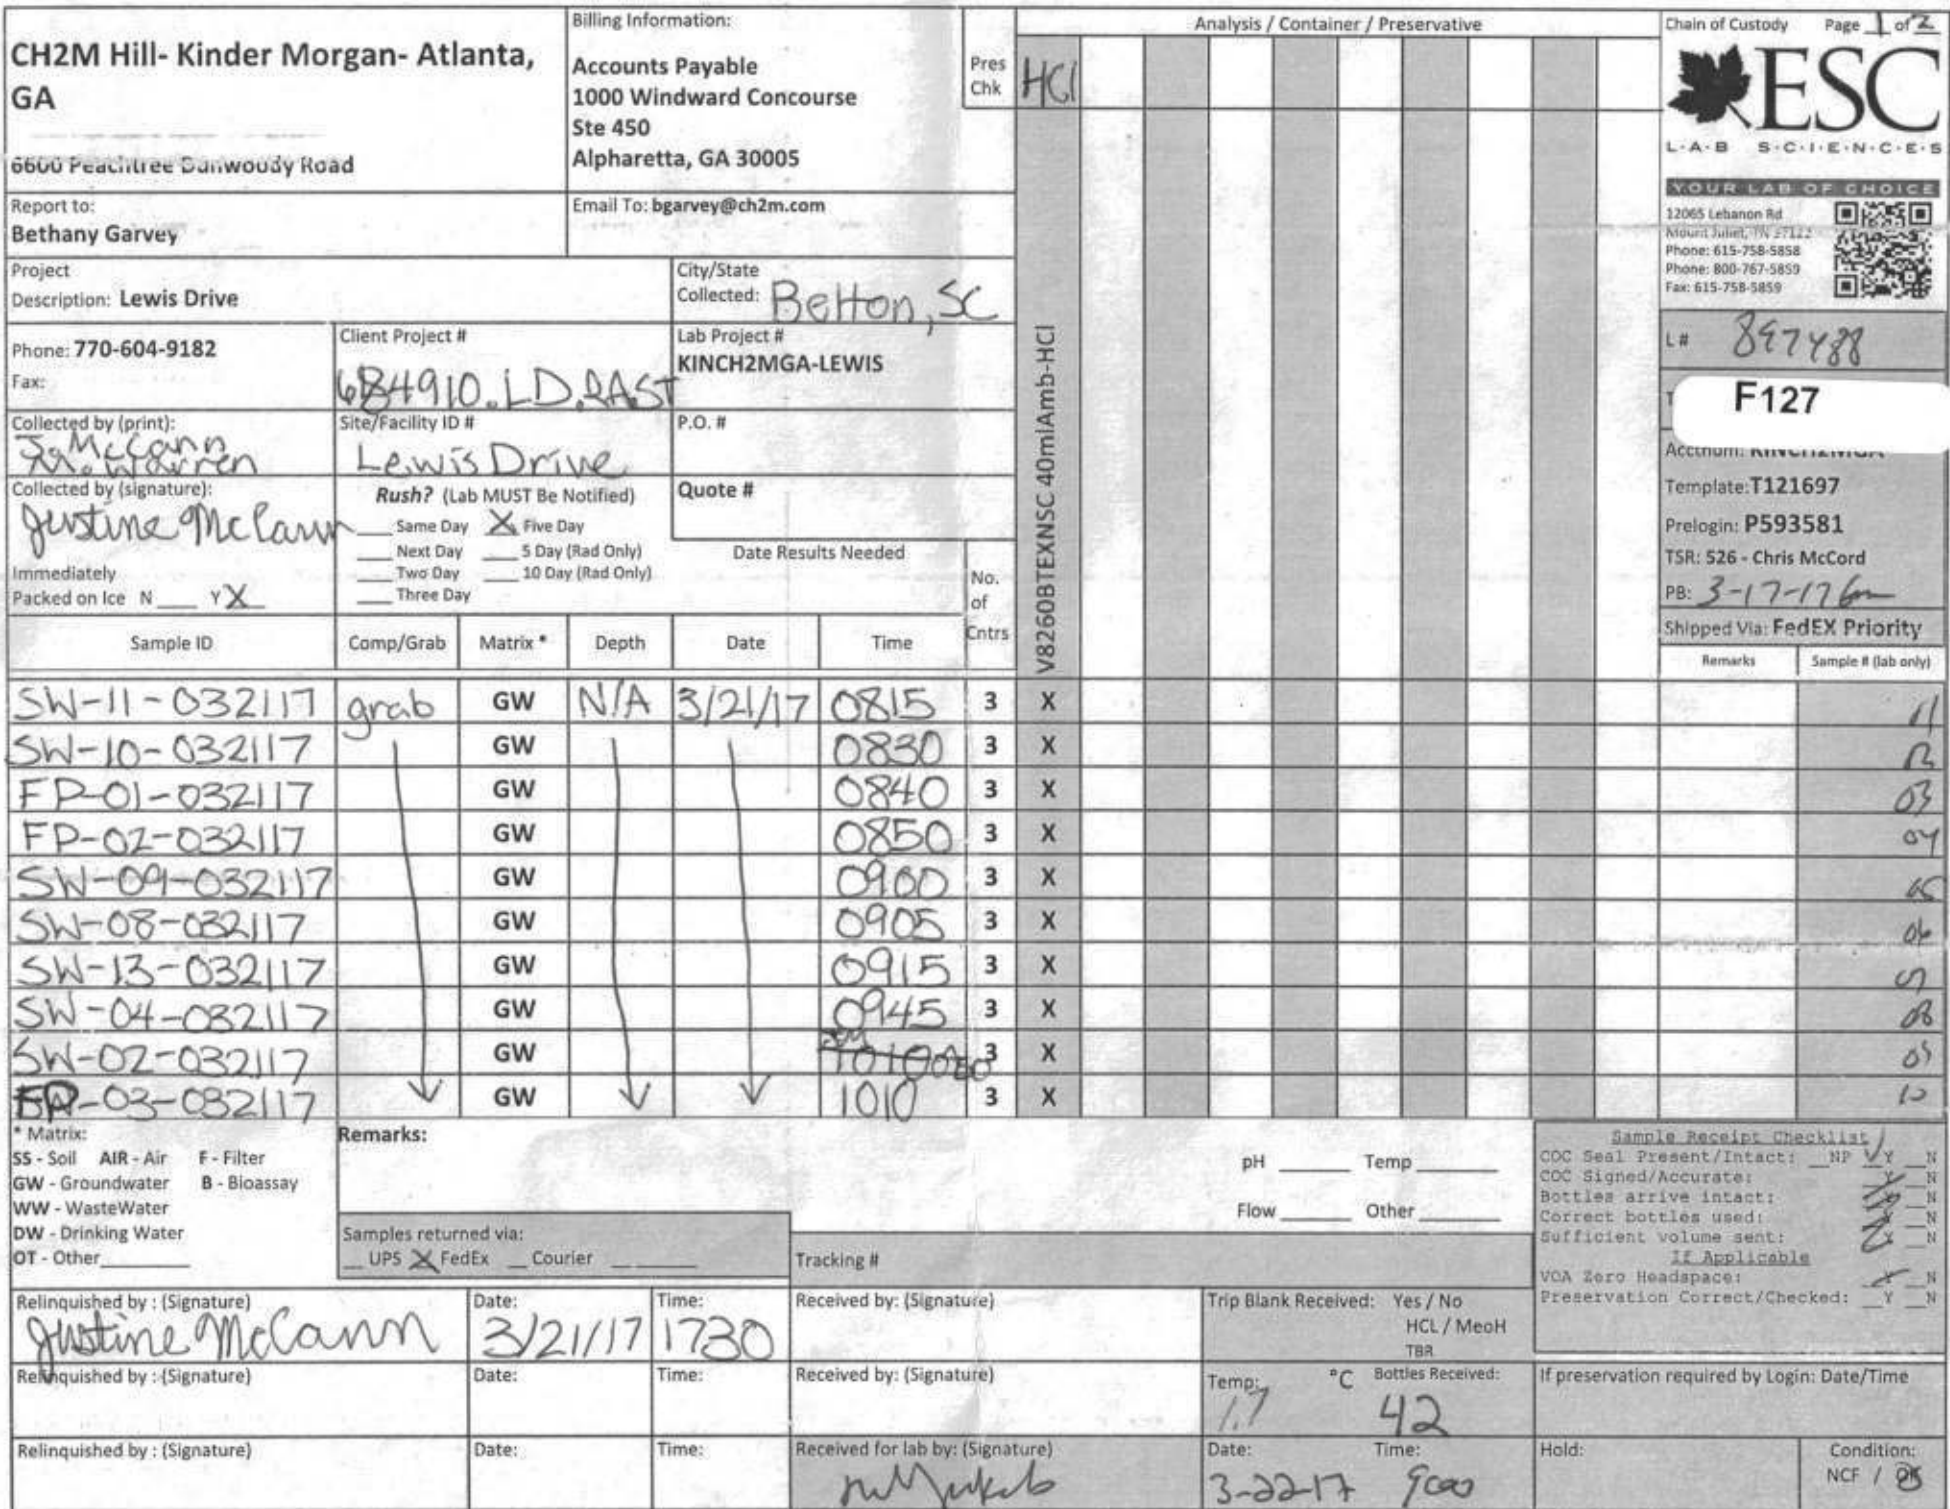 CH2M Hill- Kinder Morgan- Atlanta,
GA
6600 Peachtree Dunwoody Road
Billing Information:
Accounts Payable
1000 Windward Concourse
Ste 450
Alpharetta, GA 30005
Pres
Chk
HCl
Analysis / Container / Preservative
Chain of Custody Page 1 of 2
ESC
L·A·B S·C·I·E·N·C·E·S
YOUR LAB OF CHOICE
12065 Lebanon Rd
Mount Juliet, TN 37122
Phone: 615-758-5858
Phone: 800-767-5859
Fax: 615-758-5859
Report to:
Bethany Garvey
Email To: bgarvey@ch2m.com
Project
Description: Lewis Drive
City/State
Collected: Belton, SC
Phone: 770-604-9182
Fax:
Client Project #
684910.LD.RAST
Lab Project #
KINCH2MGA-LEWIS
L# 897488
F127
Collected by (print):
J. McCann
M. Warren
Site/Facility ID #
Lewis Drive
P.O. #
Acctnum: KINCH2MGA
Template: T121697
Prelogin: P593581
TSR: 526 - Chris McCord
PB: 3-17-17
Shipped Via: FedEX Priority
Collected by (signature):
Justine McCann
Rush? (Lab MUST Be Notified)
___ Same Day X Five Day
___ Next Day ___ 5 Day (Rad Only)
___ Two Day ___ 10 Day (Rad Only)
___ Three Day
Quote #
Date Results Needed
Immediately
Packed on Ice N ___ Y X
No.
of
Cntrs
V8260BTEXNSC 40mlAmb-HCl
Sample ID Comp/Grab Matrix * Depth Date Time Remarks Sample # (lab only)
SW-11-032117 grab GW N/A 3/21/17 0815 3 X
SW-10-032117 GW 0830 3 X
FP-01-032117 GW 0840 3 X 03
FP-02-032117 GW 0850 3 X 04
SW-09-032117 GW 0900 3 X 05
SW-08-032117 GW 0905 3 X 06
SW-13-032117 GW 0915 3 X 07
SW-04-032117 GW 0945 3 X 08
SW-02-032117 GW 1010 3 X 09
FP-03-032117 GW 1010 3 X 10
* Matrix:
SS - Soil AIR - Air F - Filter
GW - Groundwater B - Bioassay
WW - WasteWater
DW - Drinking Water
OT - Other
Remarks:
pH ___ Temp ___
Flow ___ Other ___
Samples returned via:
__ UPS X FedEx __ Courier
Tracking #
Sample Receipt Checklist
COC Seal Present/Intact: __NP ✓Y __N
COC Signed/Accurate: Y __N
Bottles arrive intact: Y __N
Correct bottles used: Y __N
Sufficient volume sent: Y __N
If Applicable
VOA Zero Headspace: Y __N
Preservation Correct/Checked: __Y __N
Relinquished by : (Signature)
Justine McCann
Date:
3/21/17
Time:
1730
Received by: (Signature)
Trip Blank Received: Yes / No
HCL / MeoH
TBR
Relinquished by : (Signature)
Date:
Time:
Received by: (Signature)
Temp: °C
1.7
Bottles Received:
42
If preservation required by Login: Date/Time
Relinquished by : (Signature)
Date:
Time:
Received for lab by: (Signature)
Date:
3-22-17
Time:
900
Hold:
Condition:
NCF /